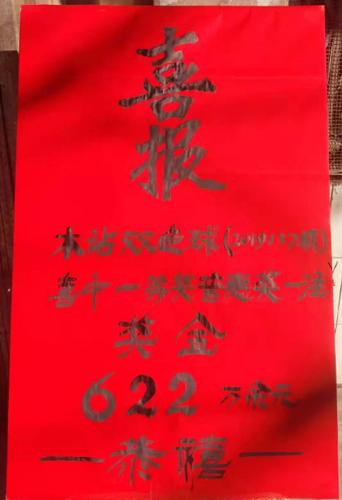 喜报
本站双色球(2019137期)
喜中一等奖普惠奖一注
奖金
622万余元
—恭禧—